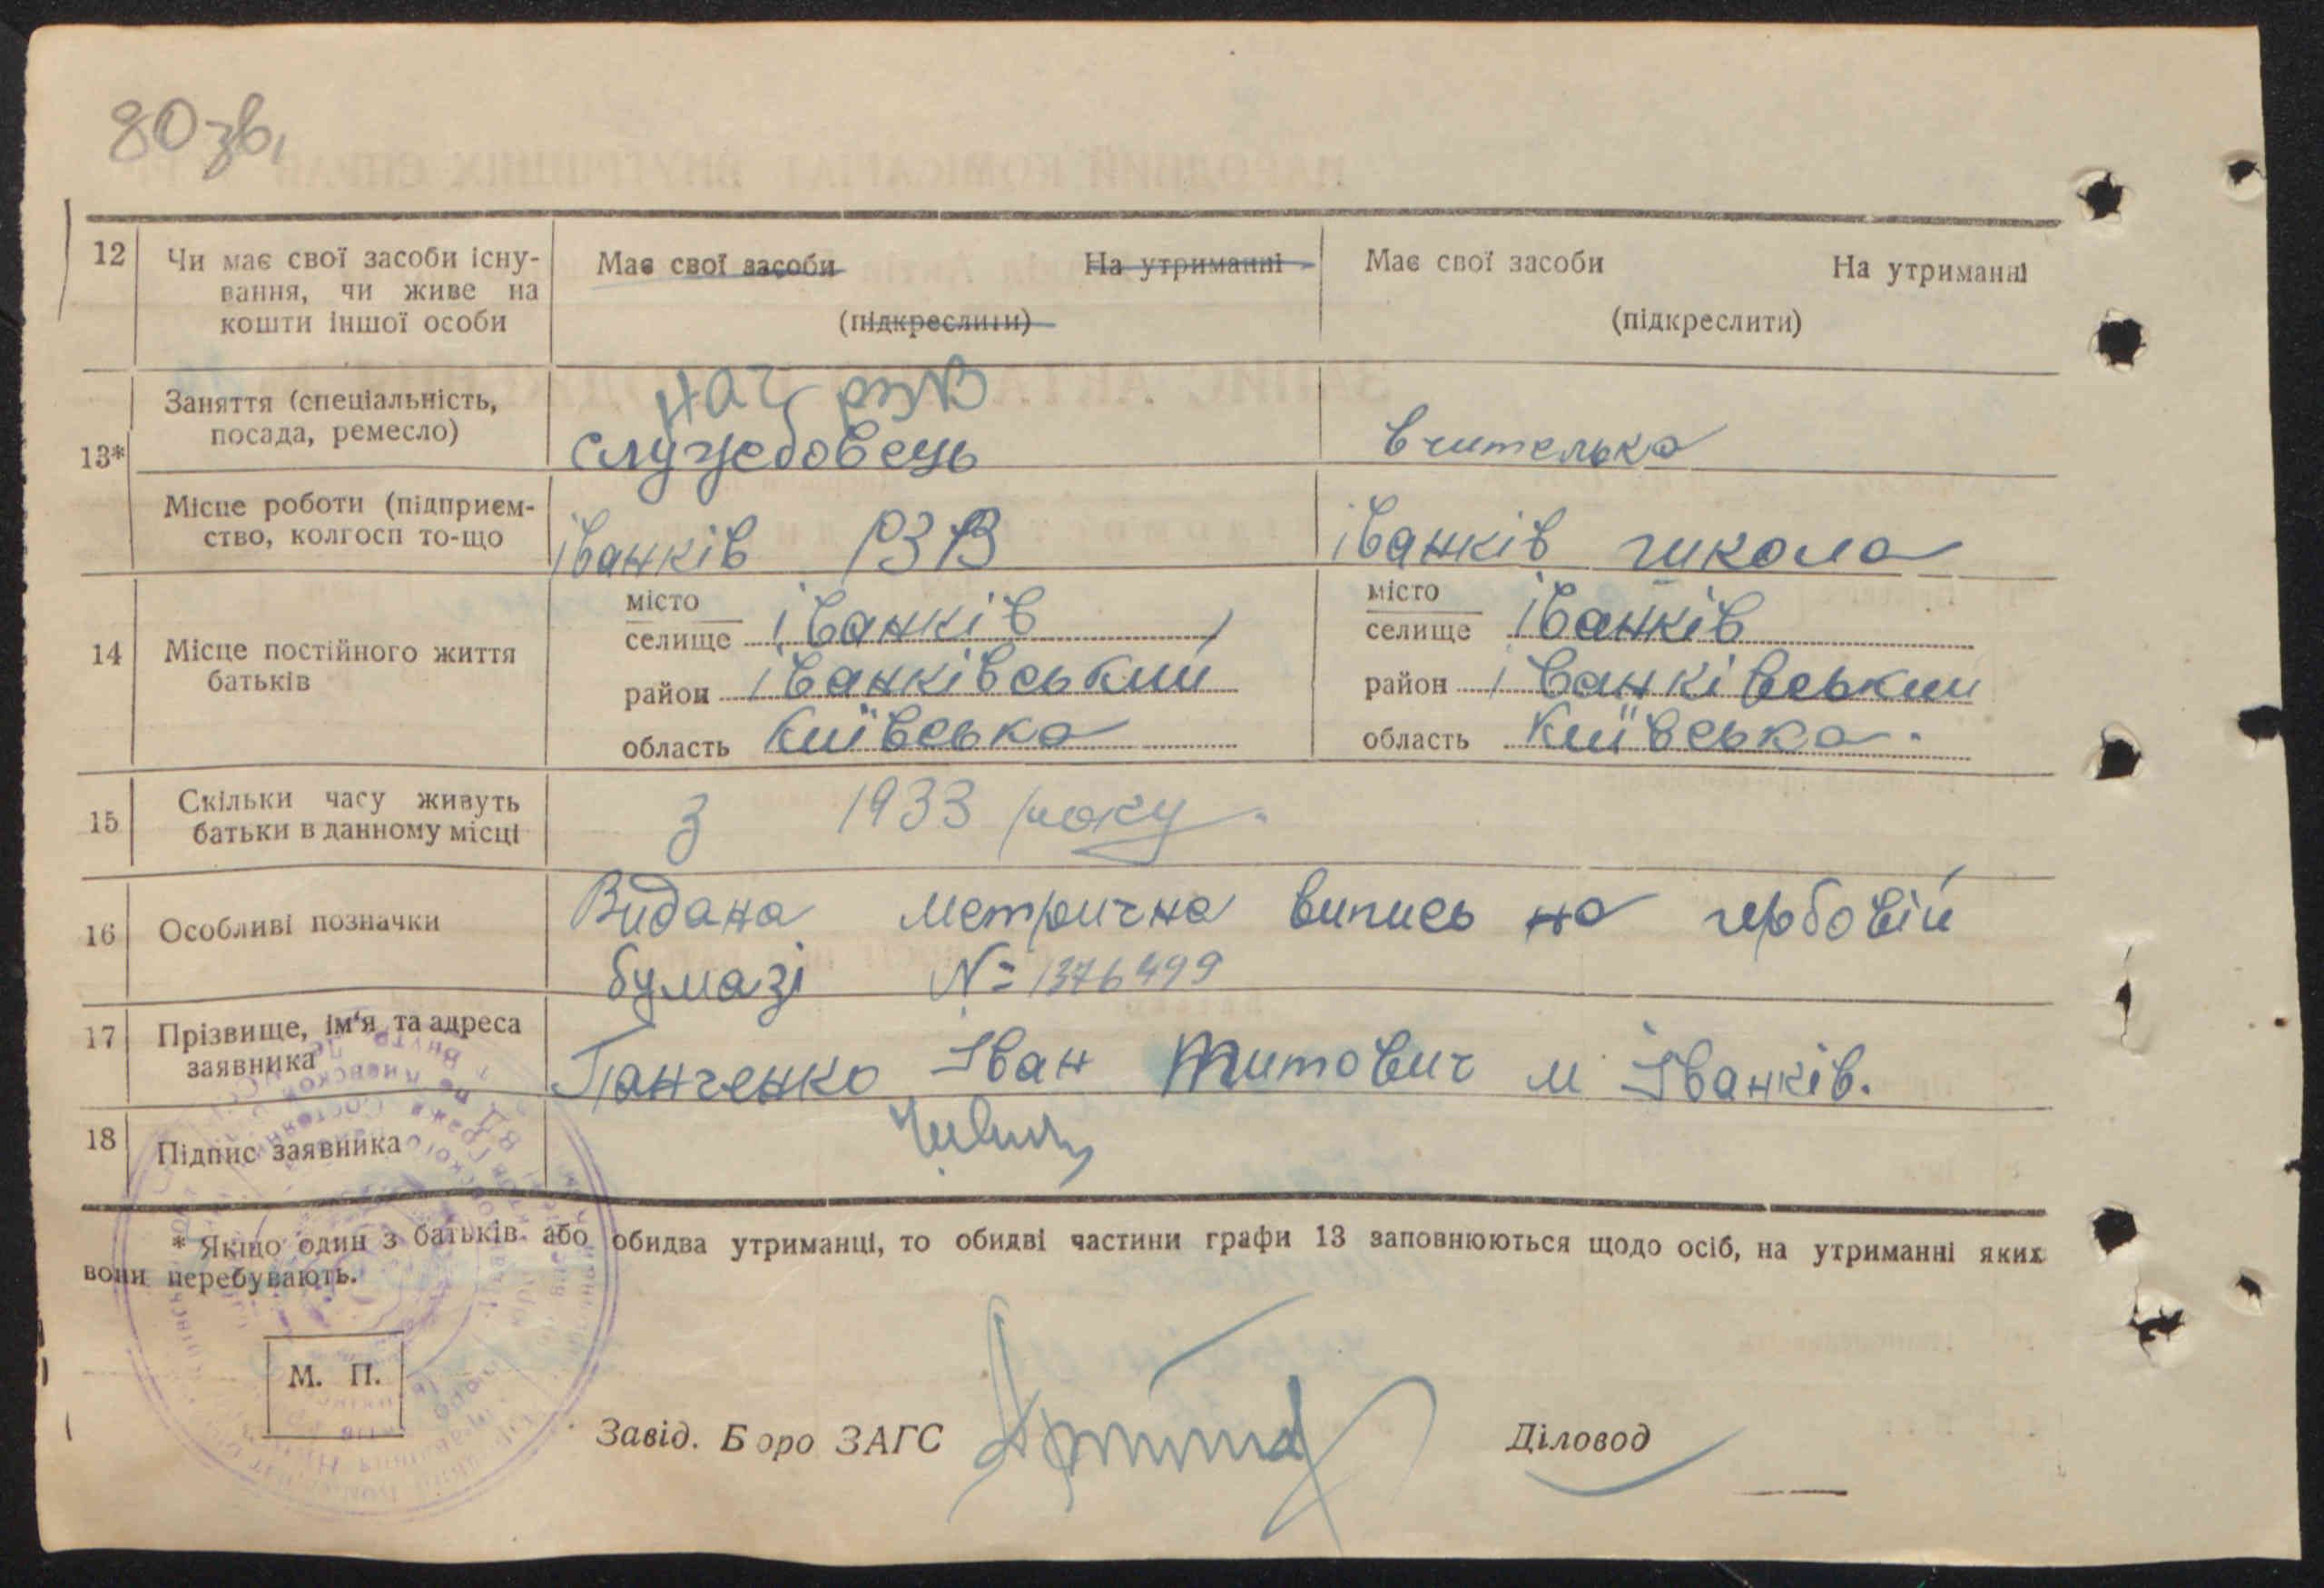 80 зв.
12 Чи має свої засоби існу-
вання, чи живе на
кошти іншої особи
Має свої засоби На утриманні
(підкреслити)
Має свої засоби На утриманні
(підкреслити)
13* Заняття (спеціальність,
посада, ремесло)
нач РЗВ
службовець
вчителька
Місце роботи (підприєм-
ство, колгосп то-що
іванків РЗВ
іванків школа
14 Місце постійного життя
батьків
місто
селище іванків
район іванківський
область Київська
місто
селище іванків
район іванківський
область Київська.
15 Скільки часу живуть
батьки в данному місці
з 1933 року.
16 Особливі позначки
Видана метрична випись на гербовій
бумазі № 1376499
17 Прізвище, ім'я та адреса
заявника
Панченко Іван Титович м Іванків.
18 Підпис заявника
* Якщо один з батьків або обидва утриманці, то обидві частини графи 13 заповнюються щодо осіб, на утриманні яких
вони перебувають.
М. П.
Завід. Бюро ЗАГС
Діловод